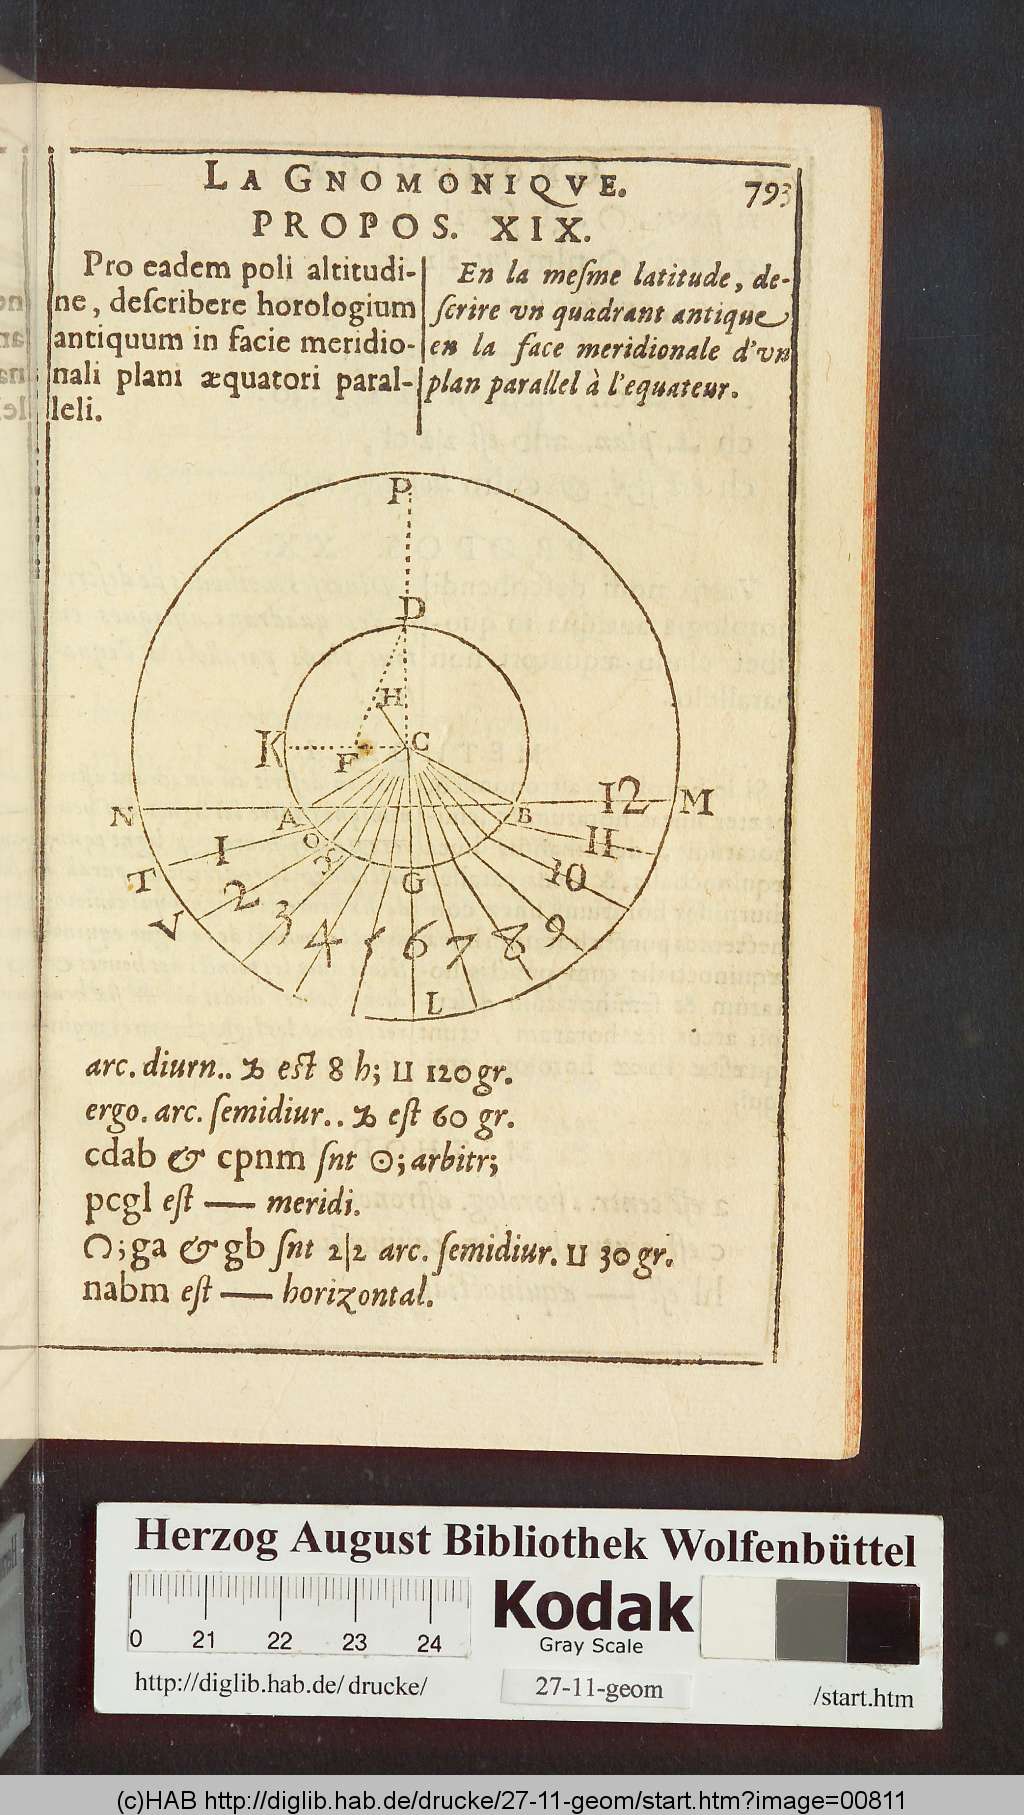 LA GNOMONIQVE.
793
PROPOS. XIX.
Pro eadem poli altitudi-
ne, deſcribere horologium
antiquum in facie meridio-
nali plani æquatori paral-
leli.
En la meſme latitude, de-
ſcrire vn quadrant antique
en la face meridionale d'vn
plan parallel à l'equateur.
P
D
H
K
F
C
N
A
B
12
M
O
I
11
T
2
10
G
V
3
4
5
6
7
8
9
L
arc. diurn.. ♑ est 8 h; ⊔ 120 gr.
ergo. arc. ſemidiur.. ♑ eſt 60 gr.
cdab & cpnm ſnt ⊙; arbitr;
pcgl eſt — meridi.
; ga & gb ſnt 2|2 arc. ſemidiur. ⊔ 30 gr.
nabm eſt — horizontal.
Herzog August Bibliothek Wolfenbüttel
0 21 22 23 24
Kodak
Gray Scale
http://diglib.hab.de/drucke/
27-11-geom
/start.htm
(c)HAB http://diglib.hab.de/drucke/27-11-geom/start.htm?image=00811